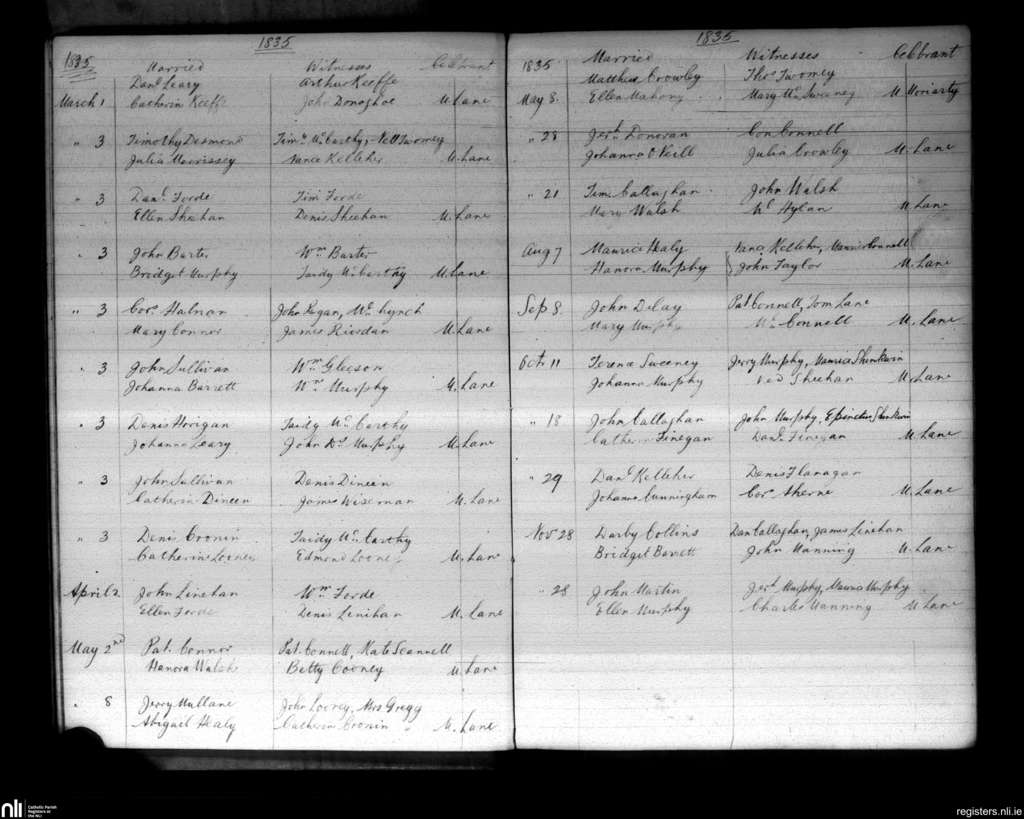 1835
1835 Married Witnesses Celebrant
Danl Leary Arthur Keeffe
March 1 Catherin Keeffe John Donoghoe M. Lane
" 3 Timothy Desmond Timy McCarthy, Nell Twomey
Julia Morrissey Nance Kelleher M. Lane
" 3 Danl Forde Tim Forde
Ellen Sheehan Denis Sheehan M. Lane
" 3 John Barter Wm Barter
Bridget Murphy Taidy McCarthy M. Lane
" 3 Cors Halnan John Regan, Wm Lynch
Mary Connor James Riordan M. Lane
" 3 John Sullivan Wm Gleeson
Johanna Barrett Wm Murphy M. Lane
" 3 Denis Horigan Taidy McCarthy
Johanna Leary John Murphy M. Lane
" 3 John Sullivan Denis Dineen
Catherin Dineen James Wiseman M. Lane
" 3 Denis Cronin Taidy McCarthy
Catherin Looney Edmond Looney M. Lane
April 2 John Linehan Wm Forde
Ellen Forde Denis Linihan M. Lane
May 2nd Pat. Connor Pat. Connell, Kate Scannell
Hanora Walsh Betty Cooney M. Lane
" 8 Jerry Mullane John Looney, Mrs Gregg
Abigail Healy Catherin Cronin M. Lane
1835
1835 Married Witnesses Celebrant
Matthew Crowley Thos Twomey
May 8. Ellen Mahony Mary McSweeney M. Moriarty
" 28 Jerh Donovan Con Connell
Johanna O'Neill Julia Crowley M. Lane
" 21 Tim Callaghan John Walsh
Mary Walsh Hylan M. Lane
Aug 7 Maurice Healy Nance Kelleher, Maurice Connell
Hanora Murphy John Taylor M. Lane
Sep 8. John Delay Pat Connell, Tom Lane
Mary Murphy Connell M. Lane
Oct 11 Terence Sweeney Jerry Murphy, Maurice Shinkwin
Johanna Murphy Ned Sheehan M. Lane
" 18 John Callaghan John Murphy, Shinkwin
Catherin Finegan Danl Finegan M. Lane
" 29 Danl Kelleher Denis Flanagan
Johanna Cunningham Cors Aherne M. Lane
Nov 28 Darby Collins Dan Callaghan, James Linehan
Bridget Barrett John Manning M. Lane
" 28 John Martin Jerh Murphy, Maurice Murphy
Ellen Murphy Charles Manning M. Lane
nli Catholic Parish Registers at the NLI
registers.nli.ie